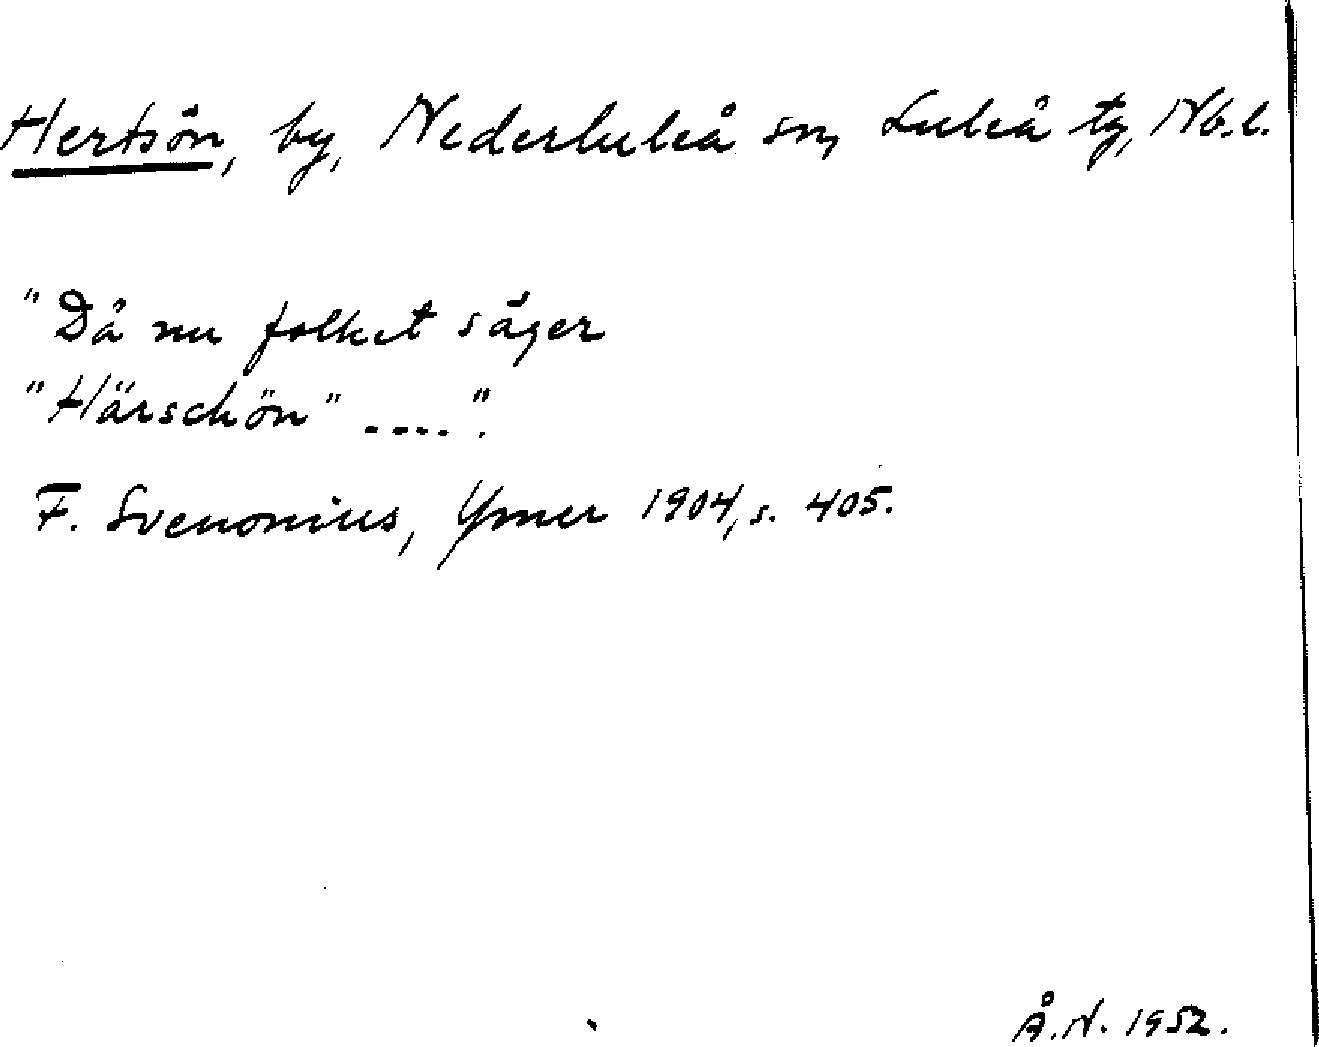 Hertsön, by, Nederluleå sn, Luleå tg, Nb.l.
"Då nu folket säger
"Härschön" ....".
F. Svenonius, Ymer 1904, s. 405.
Å.N. 1952.